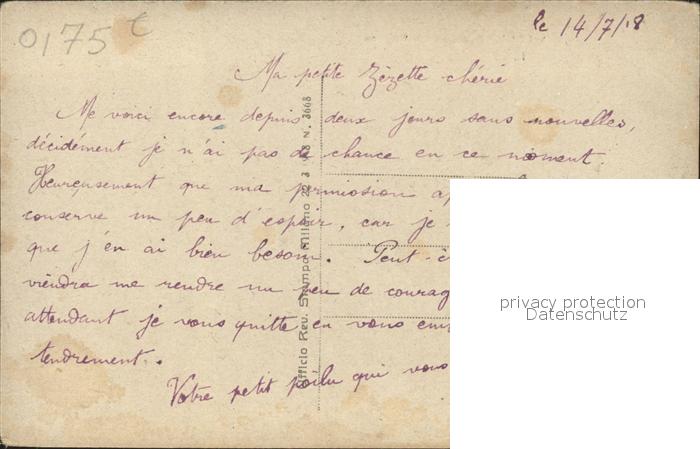 0175 t
le 14/7/18
Ma petite Zézette chérie
Me voici encore depuis deux jours sans nouvelles,
décidément je n'ai pas de chance en ce moment.
Heureusement que ma permission
conserve un peu d'espoir, car je
que j'en ai bien besoin. Peut
viendra me rendre un peu de courag
attendant je vous quitte en vous em
tendrement.
Votre petit poilu qui vous
Ufficio Rev. Stampa Milano 22 3 918 N. 3668
privacy protection
Datenschutz